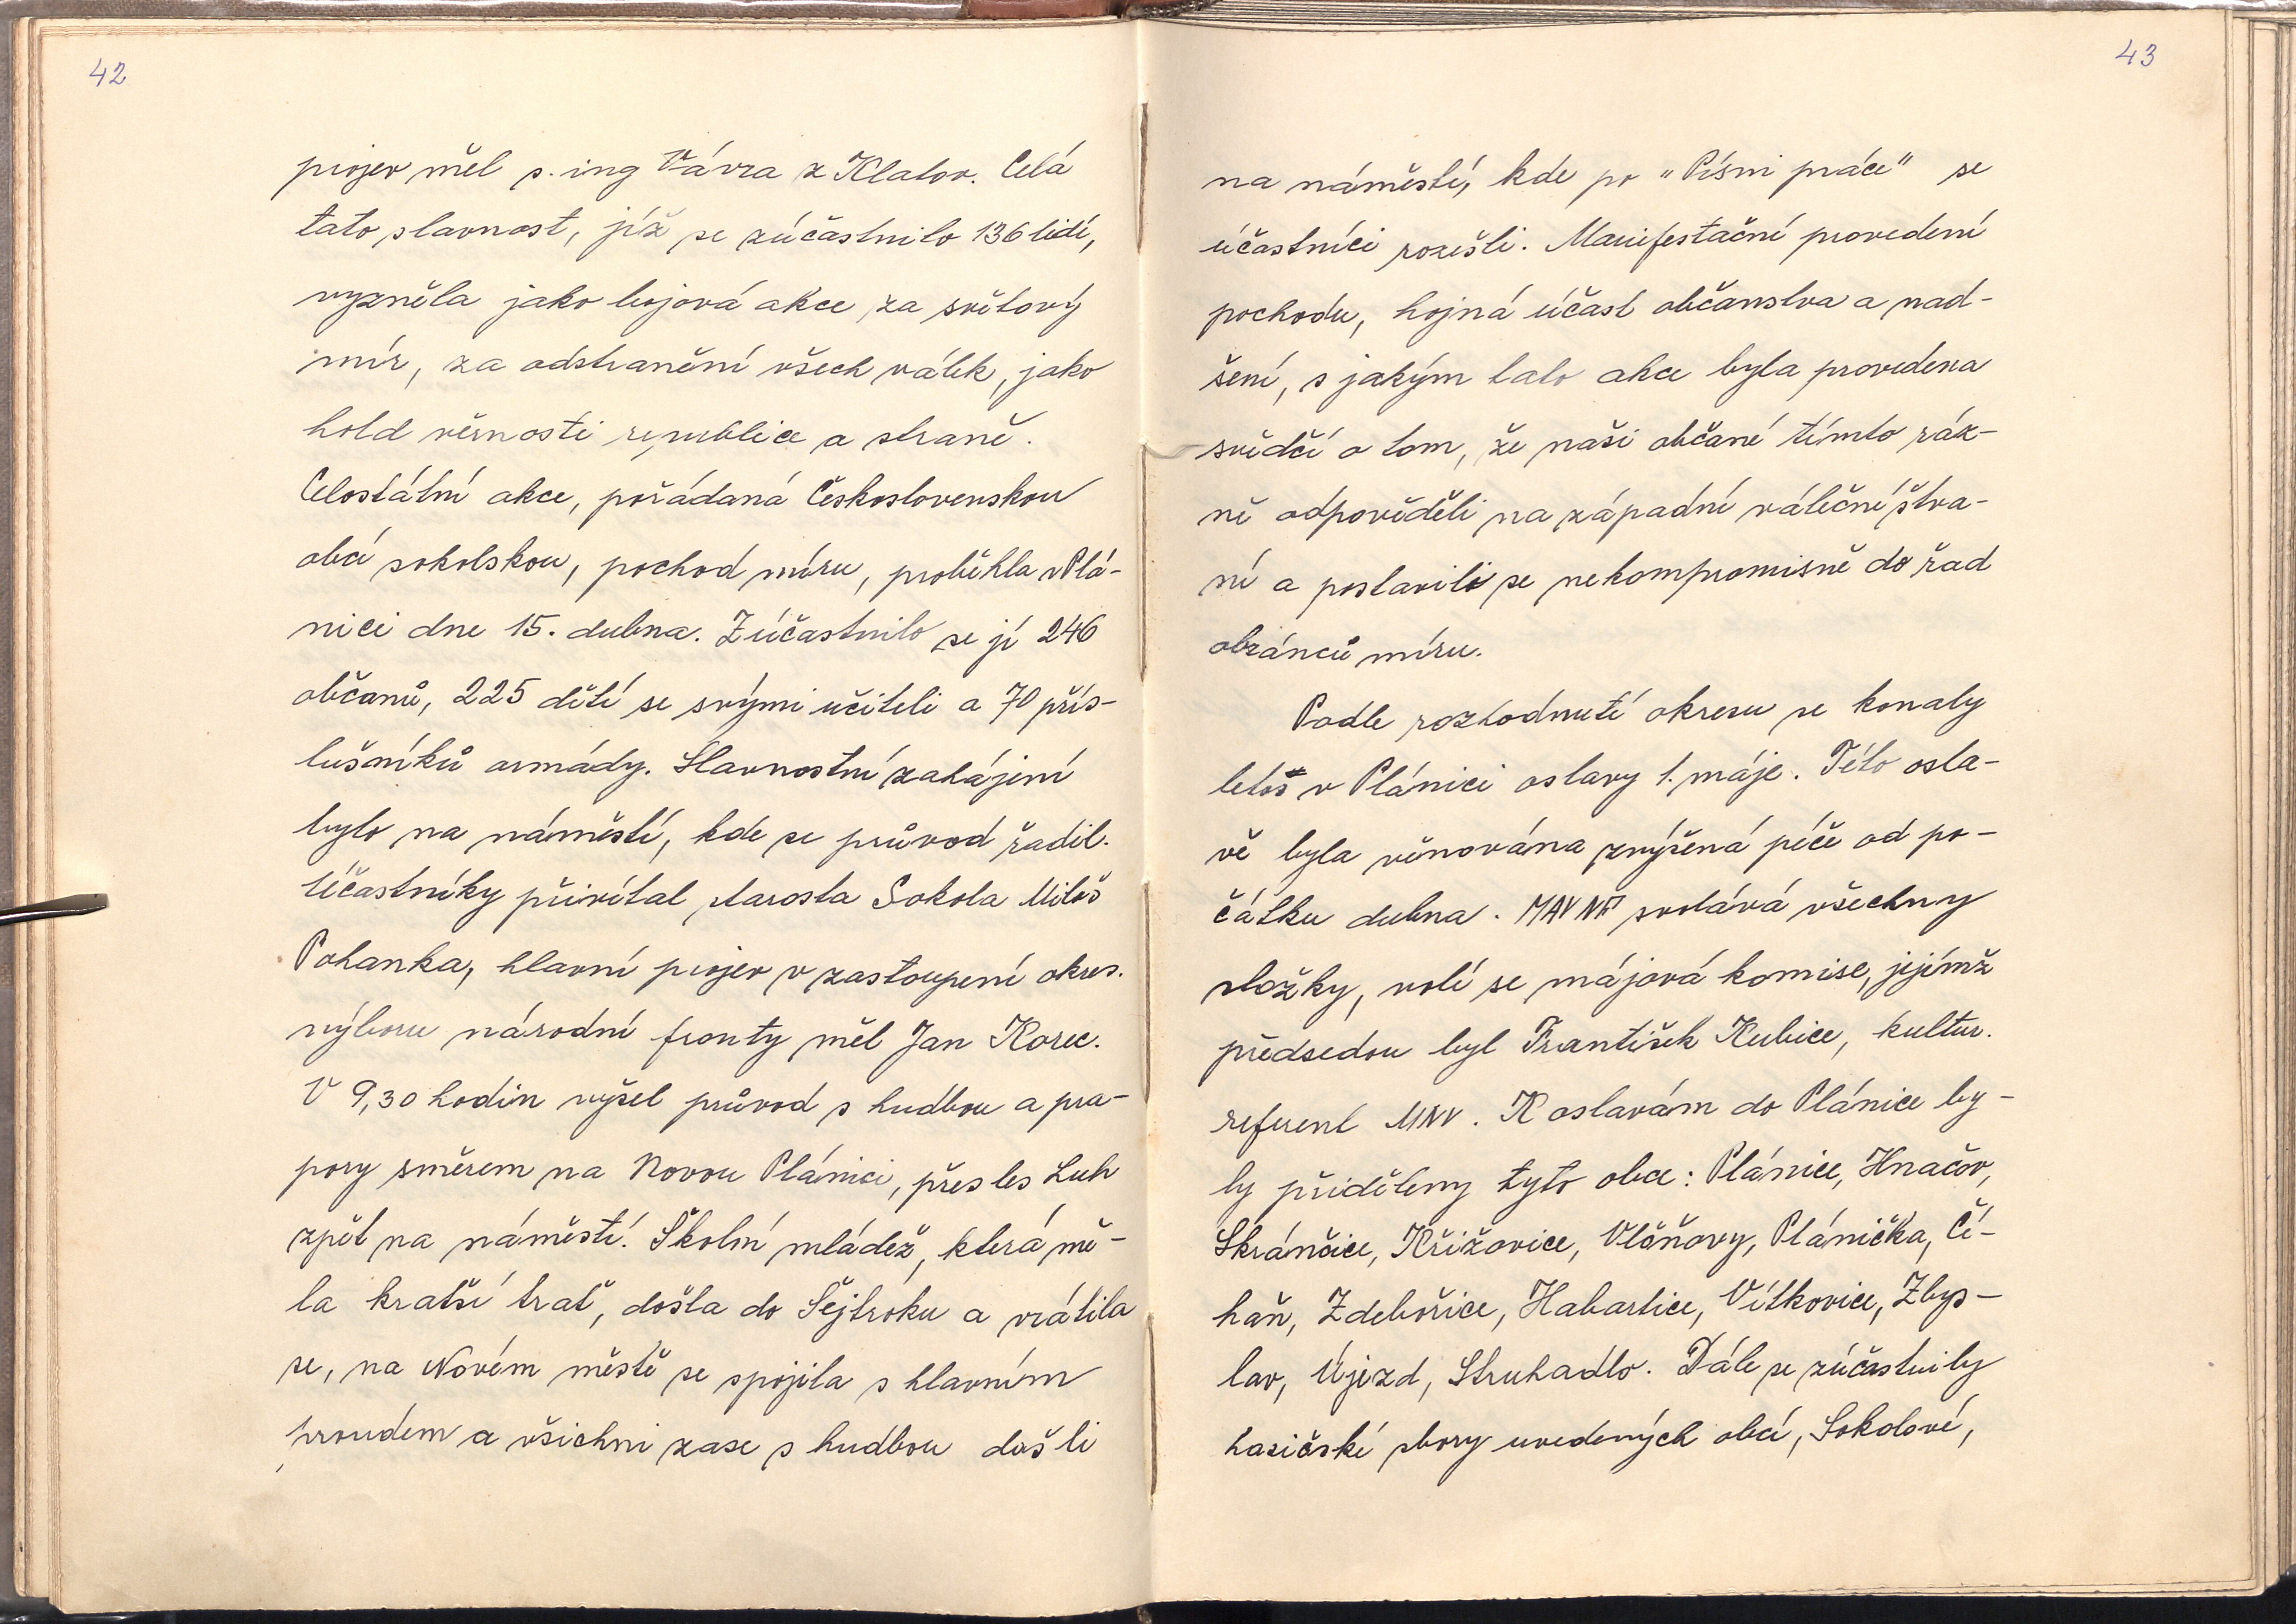 42
projev měl s. ing Vávra z Klatov. Celá
tato slavnost, jíž se zúčastnilo 136 lidí,
vyzněla jako bojová akce za světový
mír, za odstranění všech válek, jako
hold věrnosti republice a straně.
Celostátní akce, pořádaná Československou
obcí sokolskou, pochod míru, proběhla v Plá-
nici dne 15. dubna. Zúčastnilo se jí 246
občanů, 225 dětí se svými učiteli a 70 přís-
lušníků armády. Slavnostní zahájení
bylo na náměstí, kde se průvod řadil.
Účastníky přivítal starosta Sokola Miloš
Pohanka, hlavní projev v zastoupení okres.
výboru národní fronty měl Jan Korec.
V 9,30 hodin vyšel průvod s hudbou a pra-
pory směrem na Novou Plánici, přes les Luh
zpět na náměstí. Školní mládež, která mě-
la kratší trať, došla do Šejtroku a vrátila
se, na Novém městě se spojila s hlavním
proudem a všichni zase s hudbou došli
43
na náměstí, kde po "Písni práce" se
účastníci rozešli. Manifestační provedení
pochodu, hojná účast občanstva a nad-
šení, s jakým tato akce byla provedena
svědčí o tom, že naši občané tímto ráz-
ně odpověděli na západní válečné štva-
ní a postavili se nekompromisně do řad
obránců míru.
Podle rozhodnutí okresu se konaly
letos v Plánici oslavy 1. máje. Této osla-
vě byla věnována zvýšená péče od po-
čátku dubna. MAV NF svolává všechny
složky, volí se májová komise, jejímž
předsedou byl František Kubice, kultur.
referent MNV. K oslavám do Plánice by-
ly přiděleny tyto obce: Plánice, Hnačov,
Skránčice, Křižovice, Vlčňovy, Plánička, Čí-
haň, Zdebořice, Habartice, Vítkovice, Zbys-
lav, Újezd, Struhadlo. Dále se zúčastnily
hasičské sbory uvedených obcí, Sokolové,